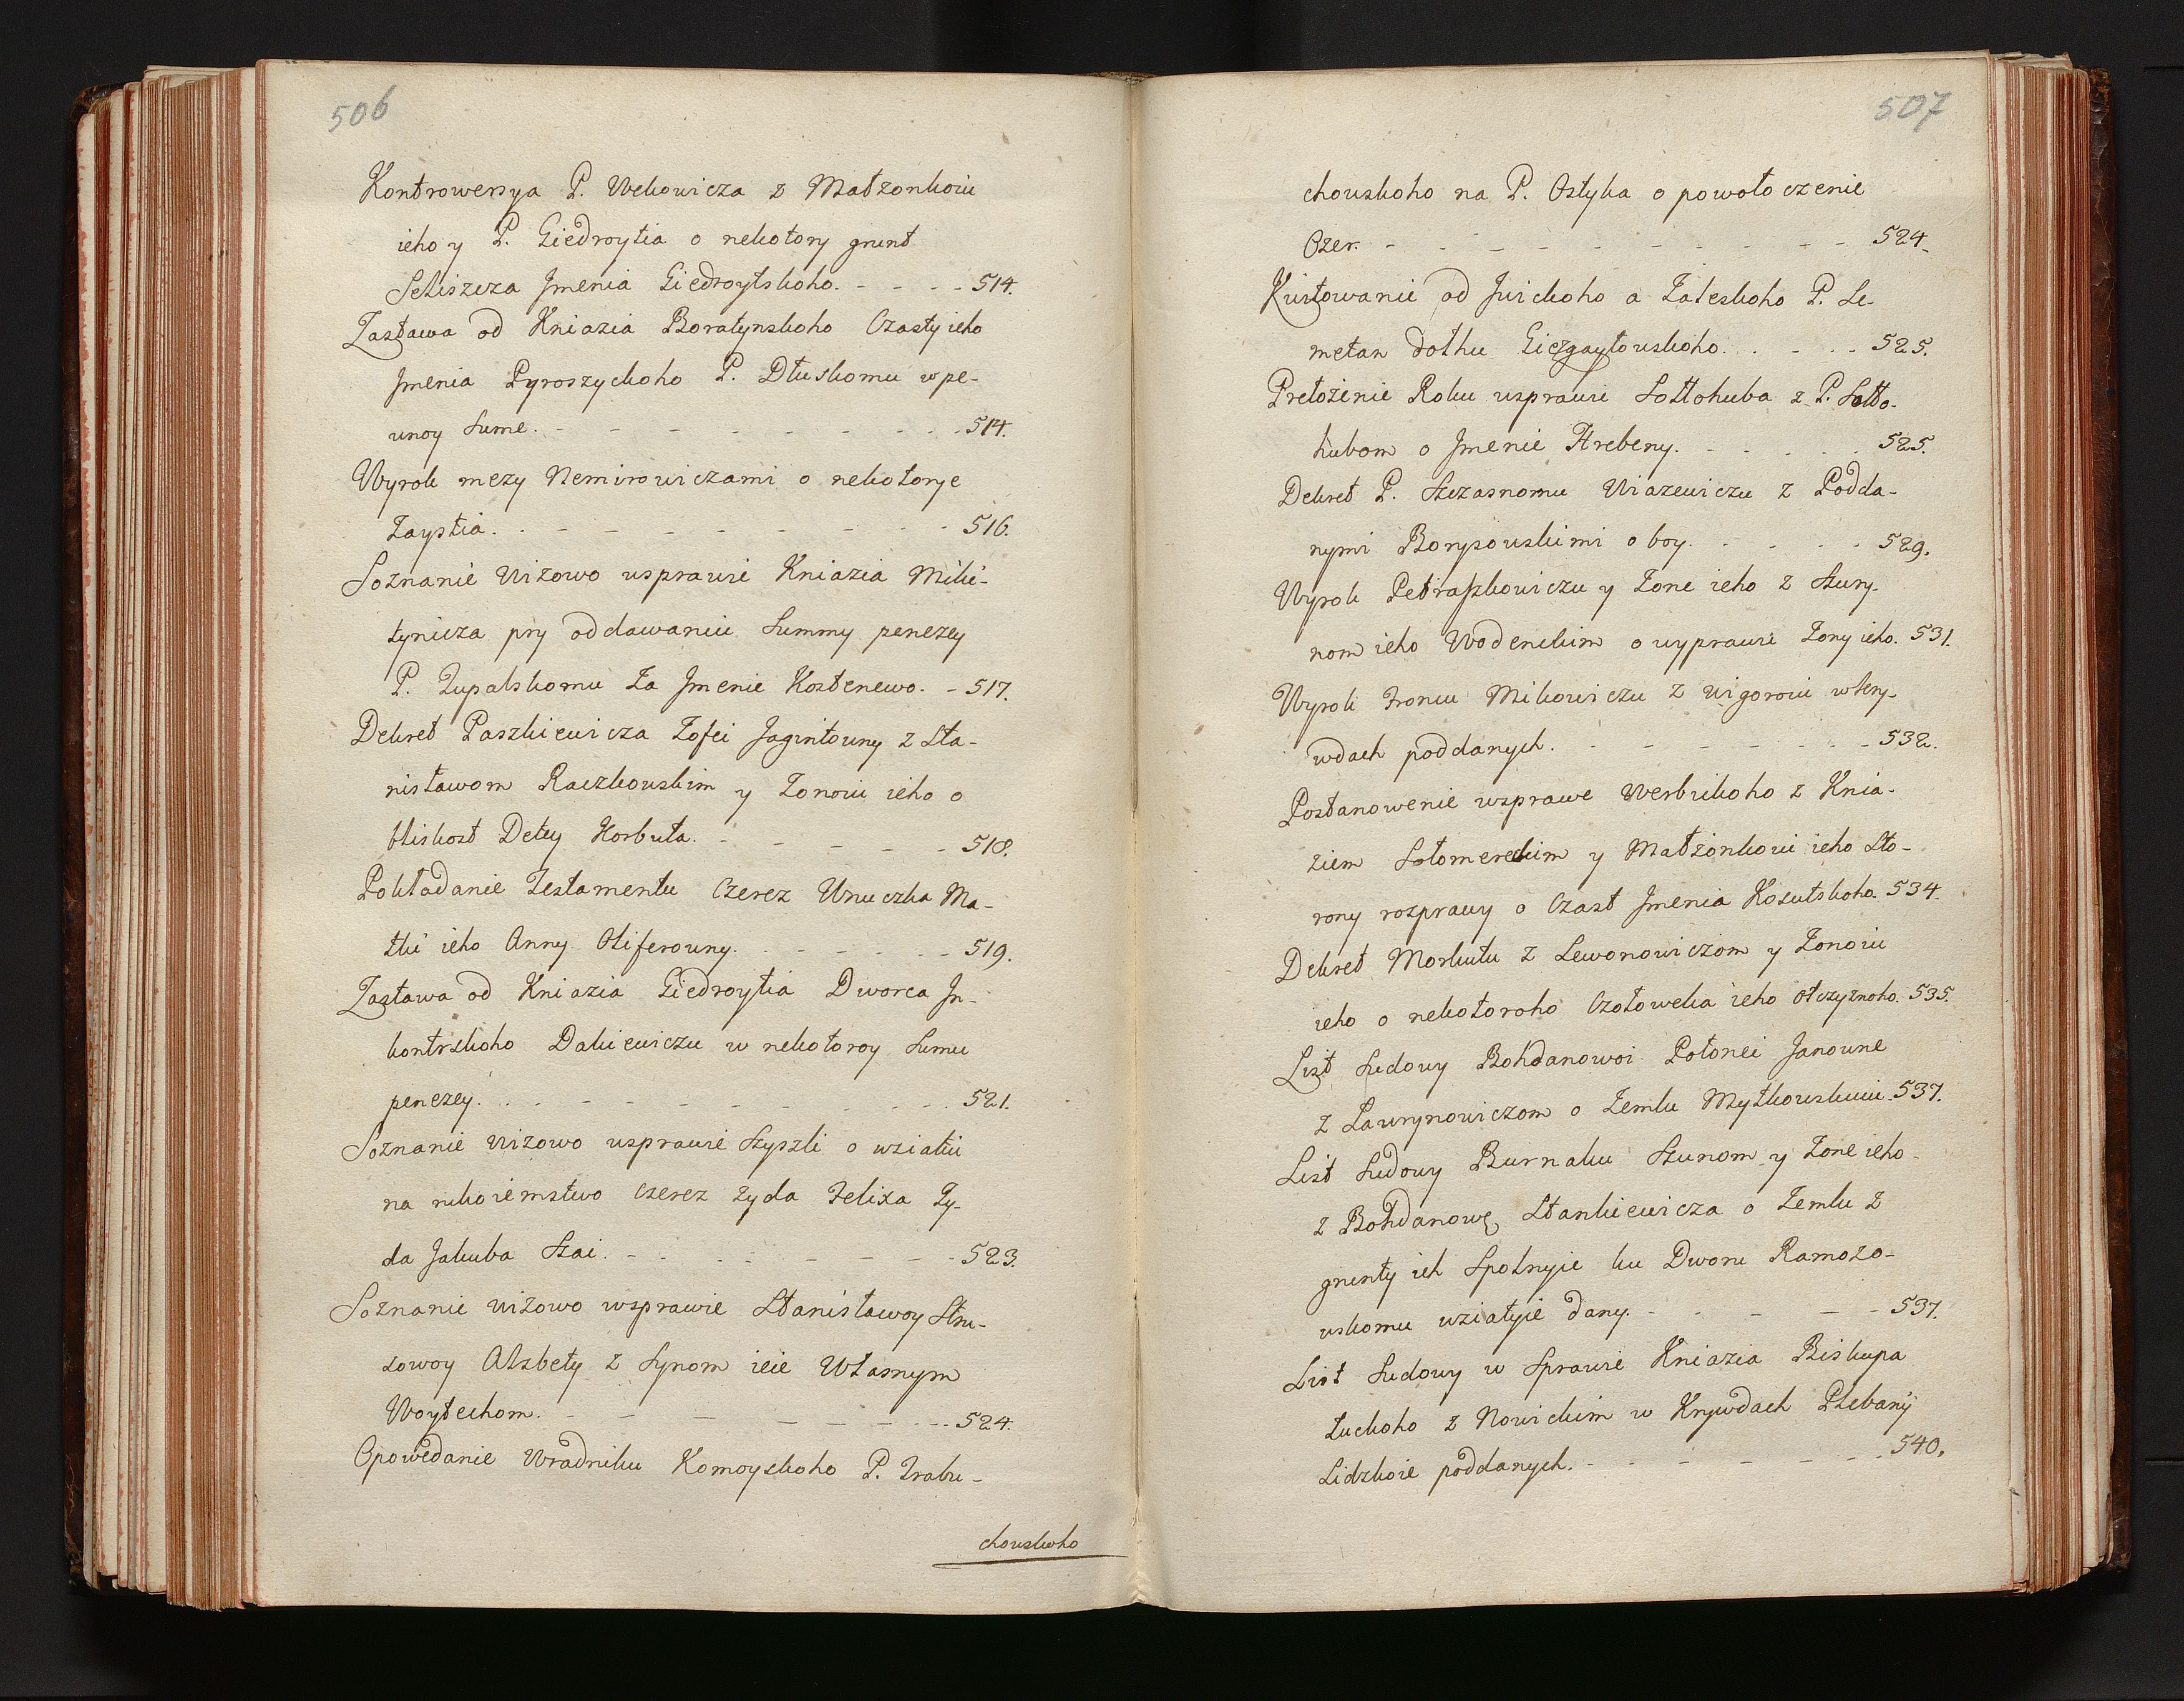 506
Kontrowersya P. Wekowicza z Małżonkoiu
ieho y P. Giedroytia o nekotory grunt
Seliszcza Jmenia Giedroytskoho. - - - - 514.
Zastawa od Kniazia Boratynskoho Czasty ieho
Jmenia Pyroszyckoho P. Dłuskomu w pe-
wnoy Sume. - - - - - - - - 514.
Wyrok mezy Nemirowiczami o nekotorye
Zaystia. - - - - - - - - 516.
Soznanie Wizowo wsprawie Kniazia Miki-
tynicza pry oddawaniu Summy penezey
P. Zupalskomu Za Jmenie Kostenewo. - 517.
Dekret Paszkiewicza Zofei Jagintowny z Sta-
nisławom Raczkowskim y Zonoiu ieho o
bliskost Detey Horbuta. - - - - - 518.
Pokładanie Testamentu Czerez Wnuczka Ma-
tki ieho Anny Oliferowny. - - - - - 519.
Zastawa od Kniazia Giedroytia Dworca In-
kontrskoho Dakiewiczu w nekotoroy Sumu
penezey. - - - - - - - - 521.
Soznanie Wizowo wsprawie Szyszki o wziatiu
na rukoiemstwo czerez zyda Felixa Zy-
da Jakuba Szai. - - - - - - 523.
Soznanie wizowo wsprawie Stanisławoy Stru-
sowoy Alzbety z Synom ieie Własnym
Woytechom. - - - - - - - 524.
Opowedanie Wradniku Komoyskoho P. Hrabu-
chowskoho
507
chowskoho na P. Ostyka o powołoczenie
Ozer. - - - - - - - - - 524.
Kwitowanie od Juickoho a Zaleskoho P. Se-
metan dołhu Giezgayłowskoho. - - - - 525.
Prełożenie Roku wsprawie Sołłohuba z P. Sołło-
hubom o Jmenie Hrebeny. - - - - - 525.
Dekret P. Szczasnomu Wiazewiczu z Podda-
nymi Borysowskimi o boy. - - - - 529.
Wyrok Petraszkowiczu y Zone ieho z Szury-
nom ieho Wodenckim o wyprawu Zony ieho. 531.
Wyrok Ironiu Mikowiczu z wigoroiu w kry-
wdach poddanych. - - - - - - 532.
Postanowenie wsprawe Werbickoho z Knia-
ziem Słomereckim y Małżonkoiu ieho Sto-
rony rozprawy o Czast Jmenia Kozutskoho. 534.
Dekret Morkutu z Lewonowiczom y Zonoiu
ieho o nekotoroho Czołoweka ieho Otczyznoho. 535.
List Sudowy Bohdanowoi Połonei Janowne
z Ławrynowiczom o Zemlu Mytkowskuiu. 537.
List Sudowy Burnaku Szunom y Zone ieho
z Bohdanowę Stankiewicza o Zemlu z
grunty ich Spolnyie ku Dworu Ramozo-
wskomu wziatyie dany. - - - - - 537.
List Sudowy w Sprawie Kniazia Biskupa
Łuckoho z Nowickim w Krywdach Plebanÿ
Lidzkoie poddanych. - - - - - - 540.